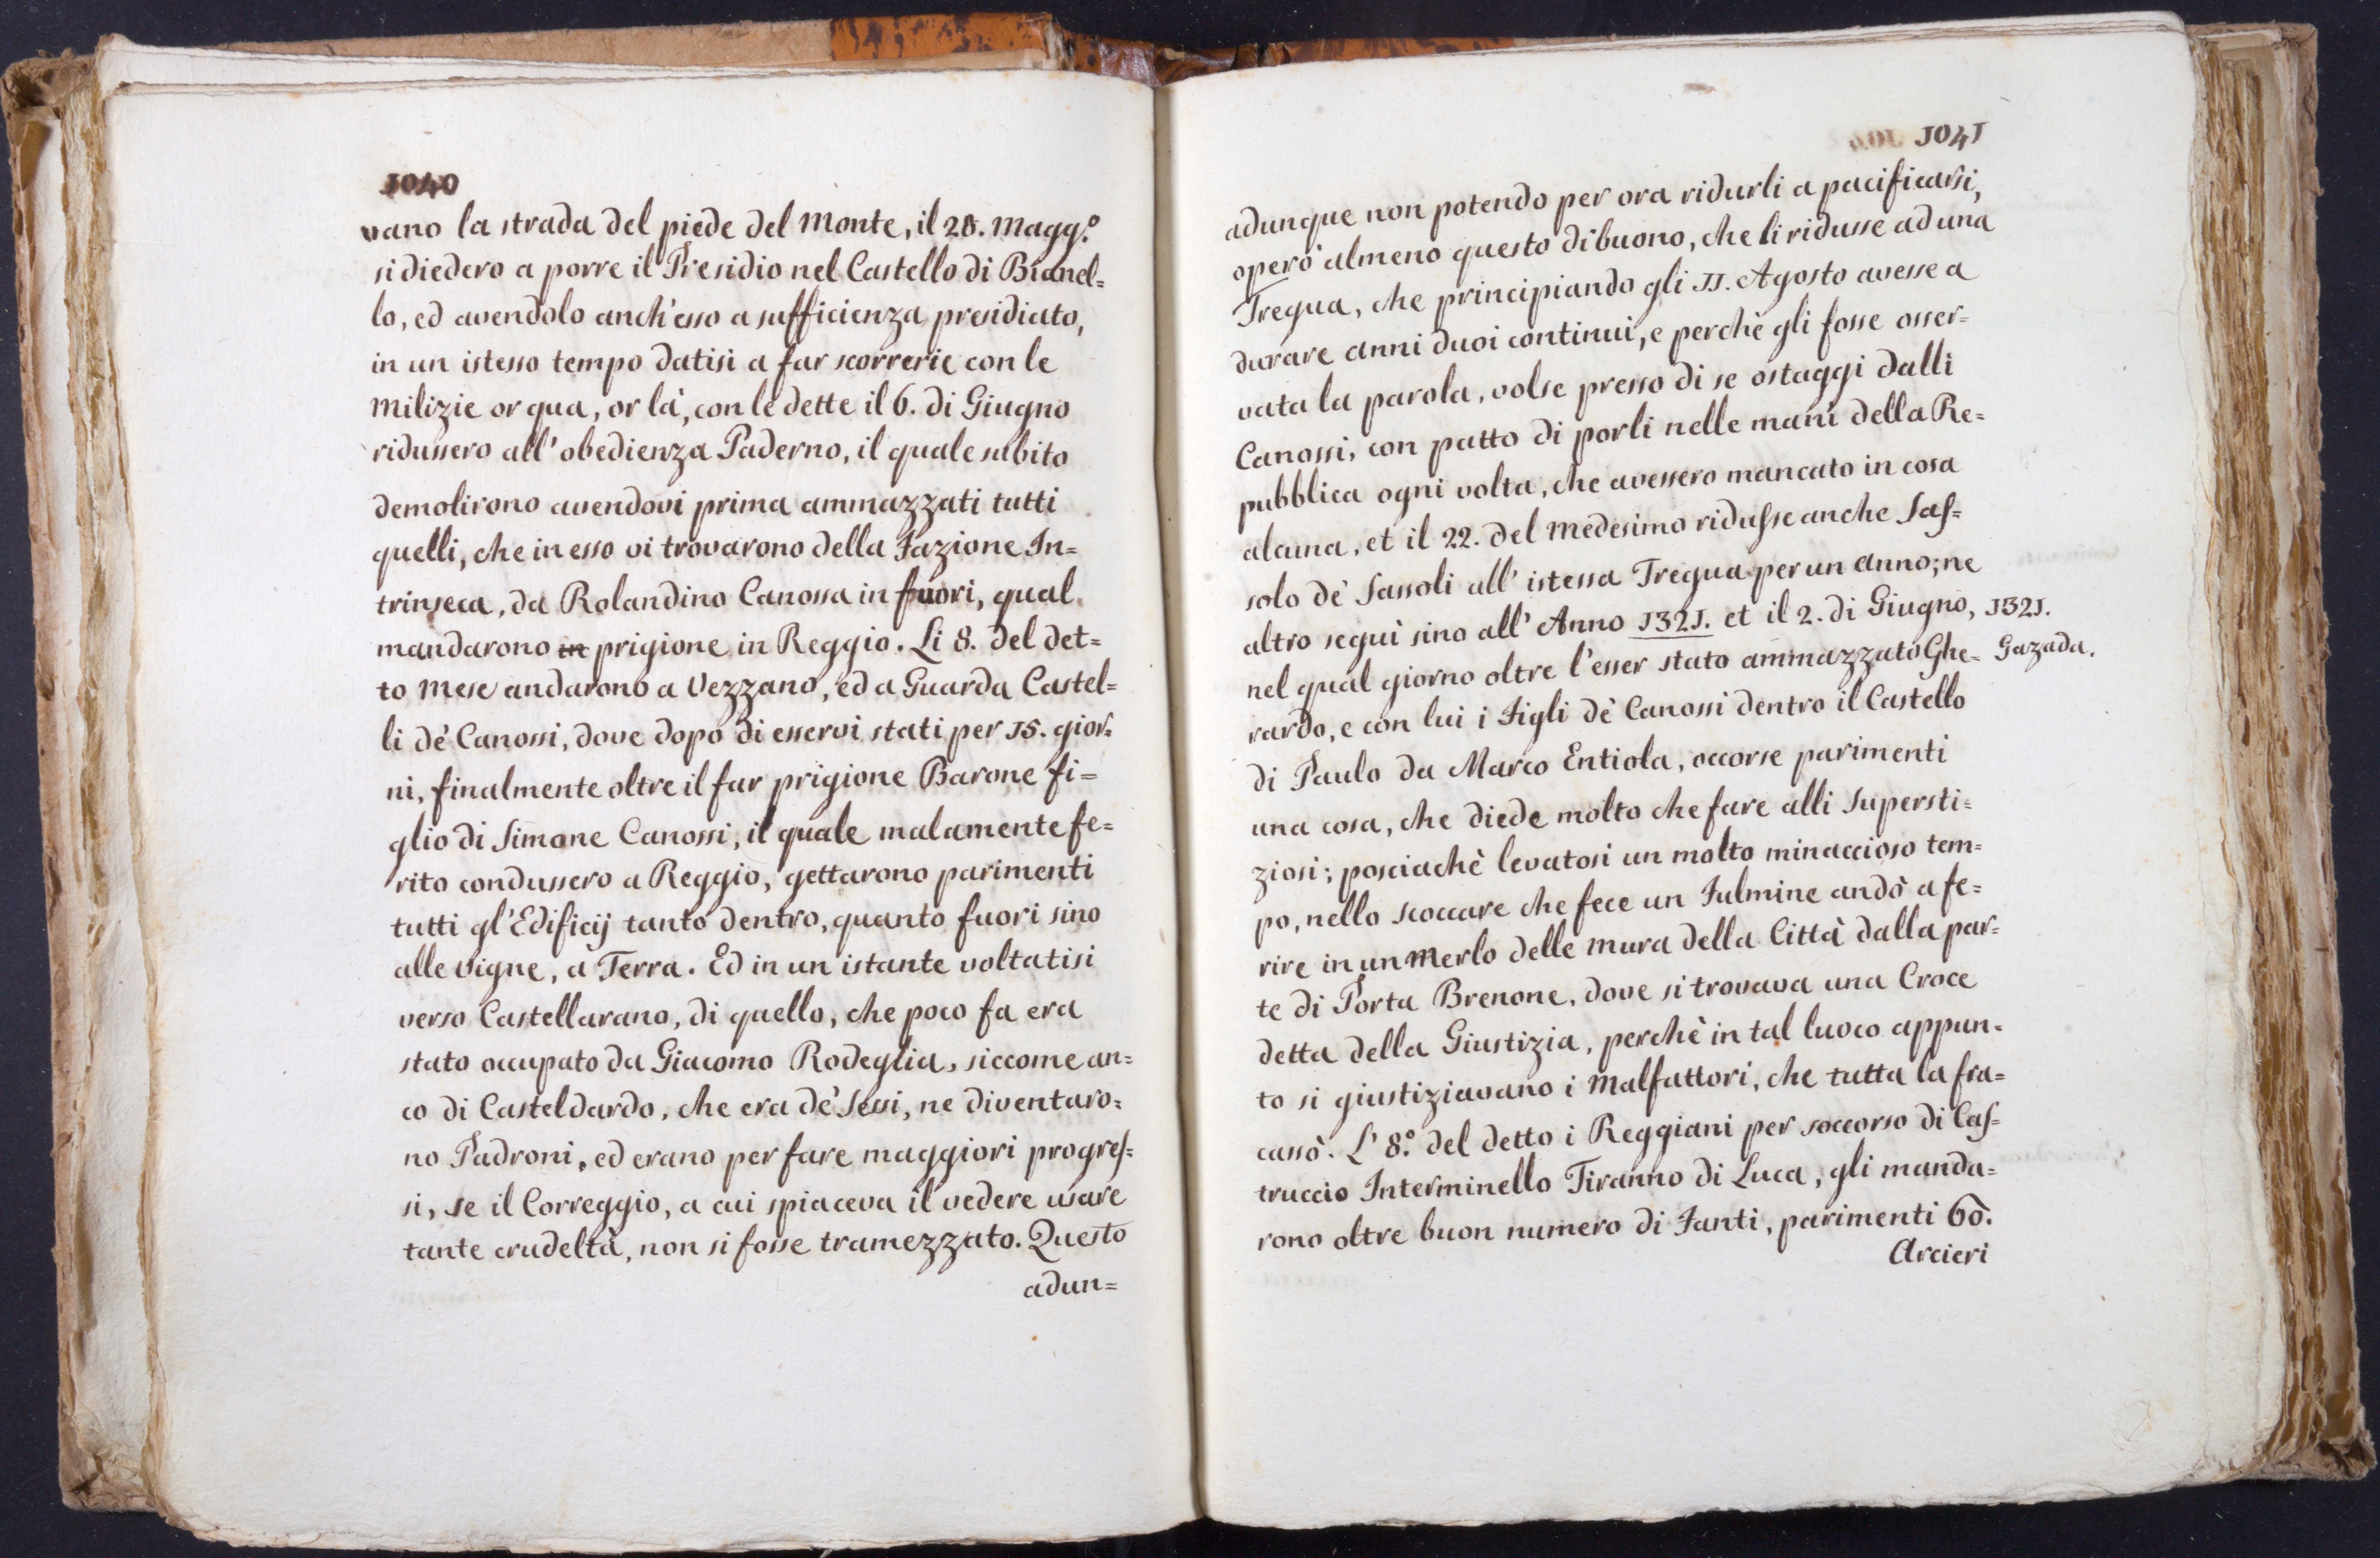 1040
vano la strada del piede del Monte, il 28. Magg.º
si diedero a porre il Presidio nel Castello di Bianel=
lo, ed avendolo anch'esso a sufficienza presidiato,
in un istesso tempo datisi a far scorrerie con le
Milizie or qua, or là, con le dette il 6. di Giugno
ridussero all' obedienza Paderno, il quale subito
demolirono avendovi prima ammazzati tutti
quelli, che in esso vi trovarono della Fazione In=
trinseca, da Rolandino Canossa in fuori, qual
mandarono in prigione in Reggio. Li 8. del det=
to Mese andarono a Vezzano, ed a Guarda Castel=
li de' Canossi, dove dopo di esservi stati per 15. gior=
ni, finalmente oltre il far prigione Barone fi=
glio di Simone Canossi, il quale malamente fe=
rito condussero a Reggio, gettarono parimenti
tutti gl'Edificij tanto dentro, quanto fuori sino
alle vigne, a Terra. Ed in un istante voltatisi
verso Castellarano, di quello, che poco fa era
stato occupato da Giacomo Rodeglia, siccome an=
co di Casteldardo, che era de' Sessi, ne diventaro=
no Padroni, ed erano per fare maggiori progres=
si, se il Correggio, a cui spiaceva il vedere usare
tante crudeltà, non si fosse tramezzato. Questo
adun=
1041
adunque non potendo per ora ridurli a pacificarsi,
operò almeno questo di buono, che li ridusse ad una
Tregua, che principiando gli 11. Agosto avesse a
durare anni duoi continui, e perchè gli fosse osser=
vata la parola, volse presso di se ostaggi dalli
Canossi, con patto di porli nelle mani della Re=
pubblica ogni volta, che avessero mancato in cosa
alcuna, et il 22. del medesimo ridusse anche Sas=
solo de' Sassoli all' istessa Tregua per un anno; ne
altro seguì sino all' Anno 1321. et il 2. di Giugno, 1321.
nel qual giorno oltre l'esser stato ammazzato Ghe= Gazada.
rardo, e con lui i Figli de' Canossi dentro il Castello
di Paulo da Marco Entiola, occorse parimenti
una cosa, che diede molto che fare alli Supersti=
ziosi; posciachè levatosi un molto minaccioso tem=
po, nello scoccare che fece un Fulmine andò a fe=
rire in un Merlo delle mura della Città dalla par=
te di Porta Brenone, dove si trovava una Croce
detta della Giustizia, perchè in tal luoco appun=
to si giustiziavano i Malfattori, che tutta la fra=
cassò. L' 8.º del detto i Reggiani per soccorso di Cas=
truccio Interminello Tiranno di Luca, gli manda=
rono oltre buon numero di Fanti, parimenti 60.
Arcieri